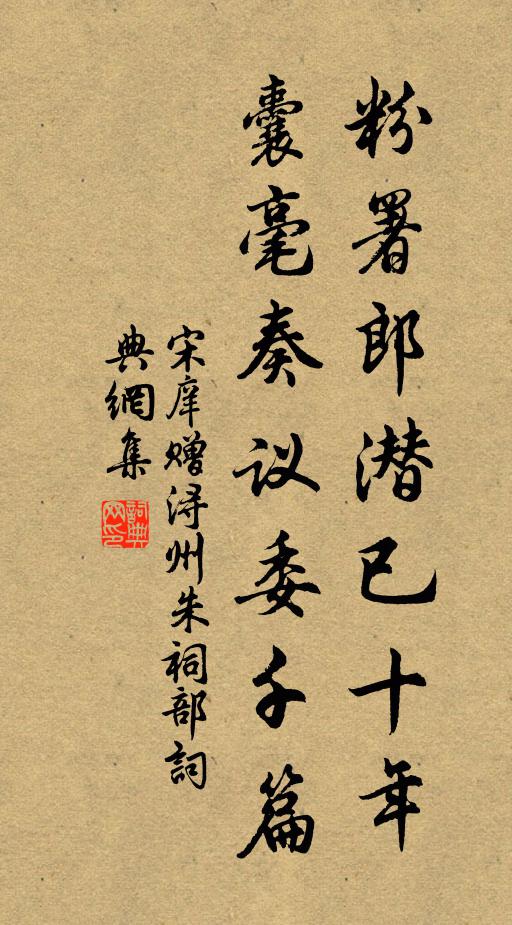 粉署郎潜已十年
囊毫奏议委千篇
宋庠赠浔州朱祠部詞
典網集
詞典網印